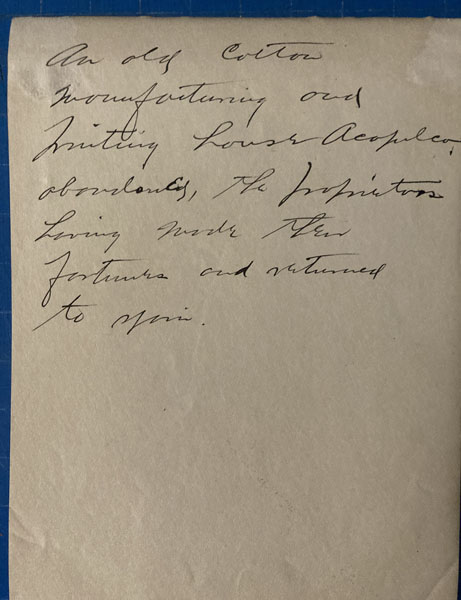 An old Cotton
manufacturing and
printing house Acapulco,
abandoned, the proprietors
having made their
fortunes and returned
to spain.